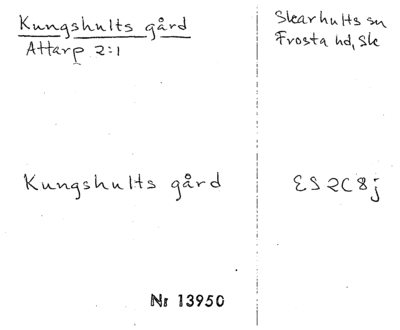 Kungshults gård
Attarp 2:1
Skarhults sn
Frosta hd, Sk
Kungshults gård
ES 2C 8j
Nr 13950